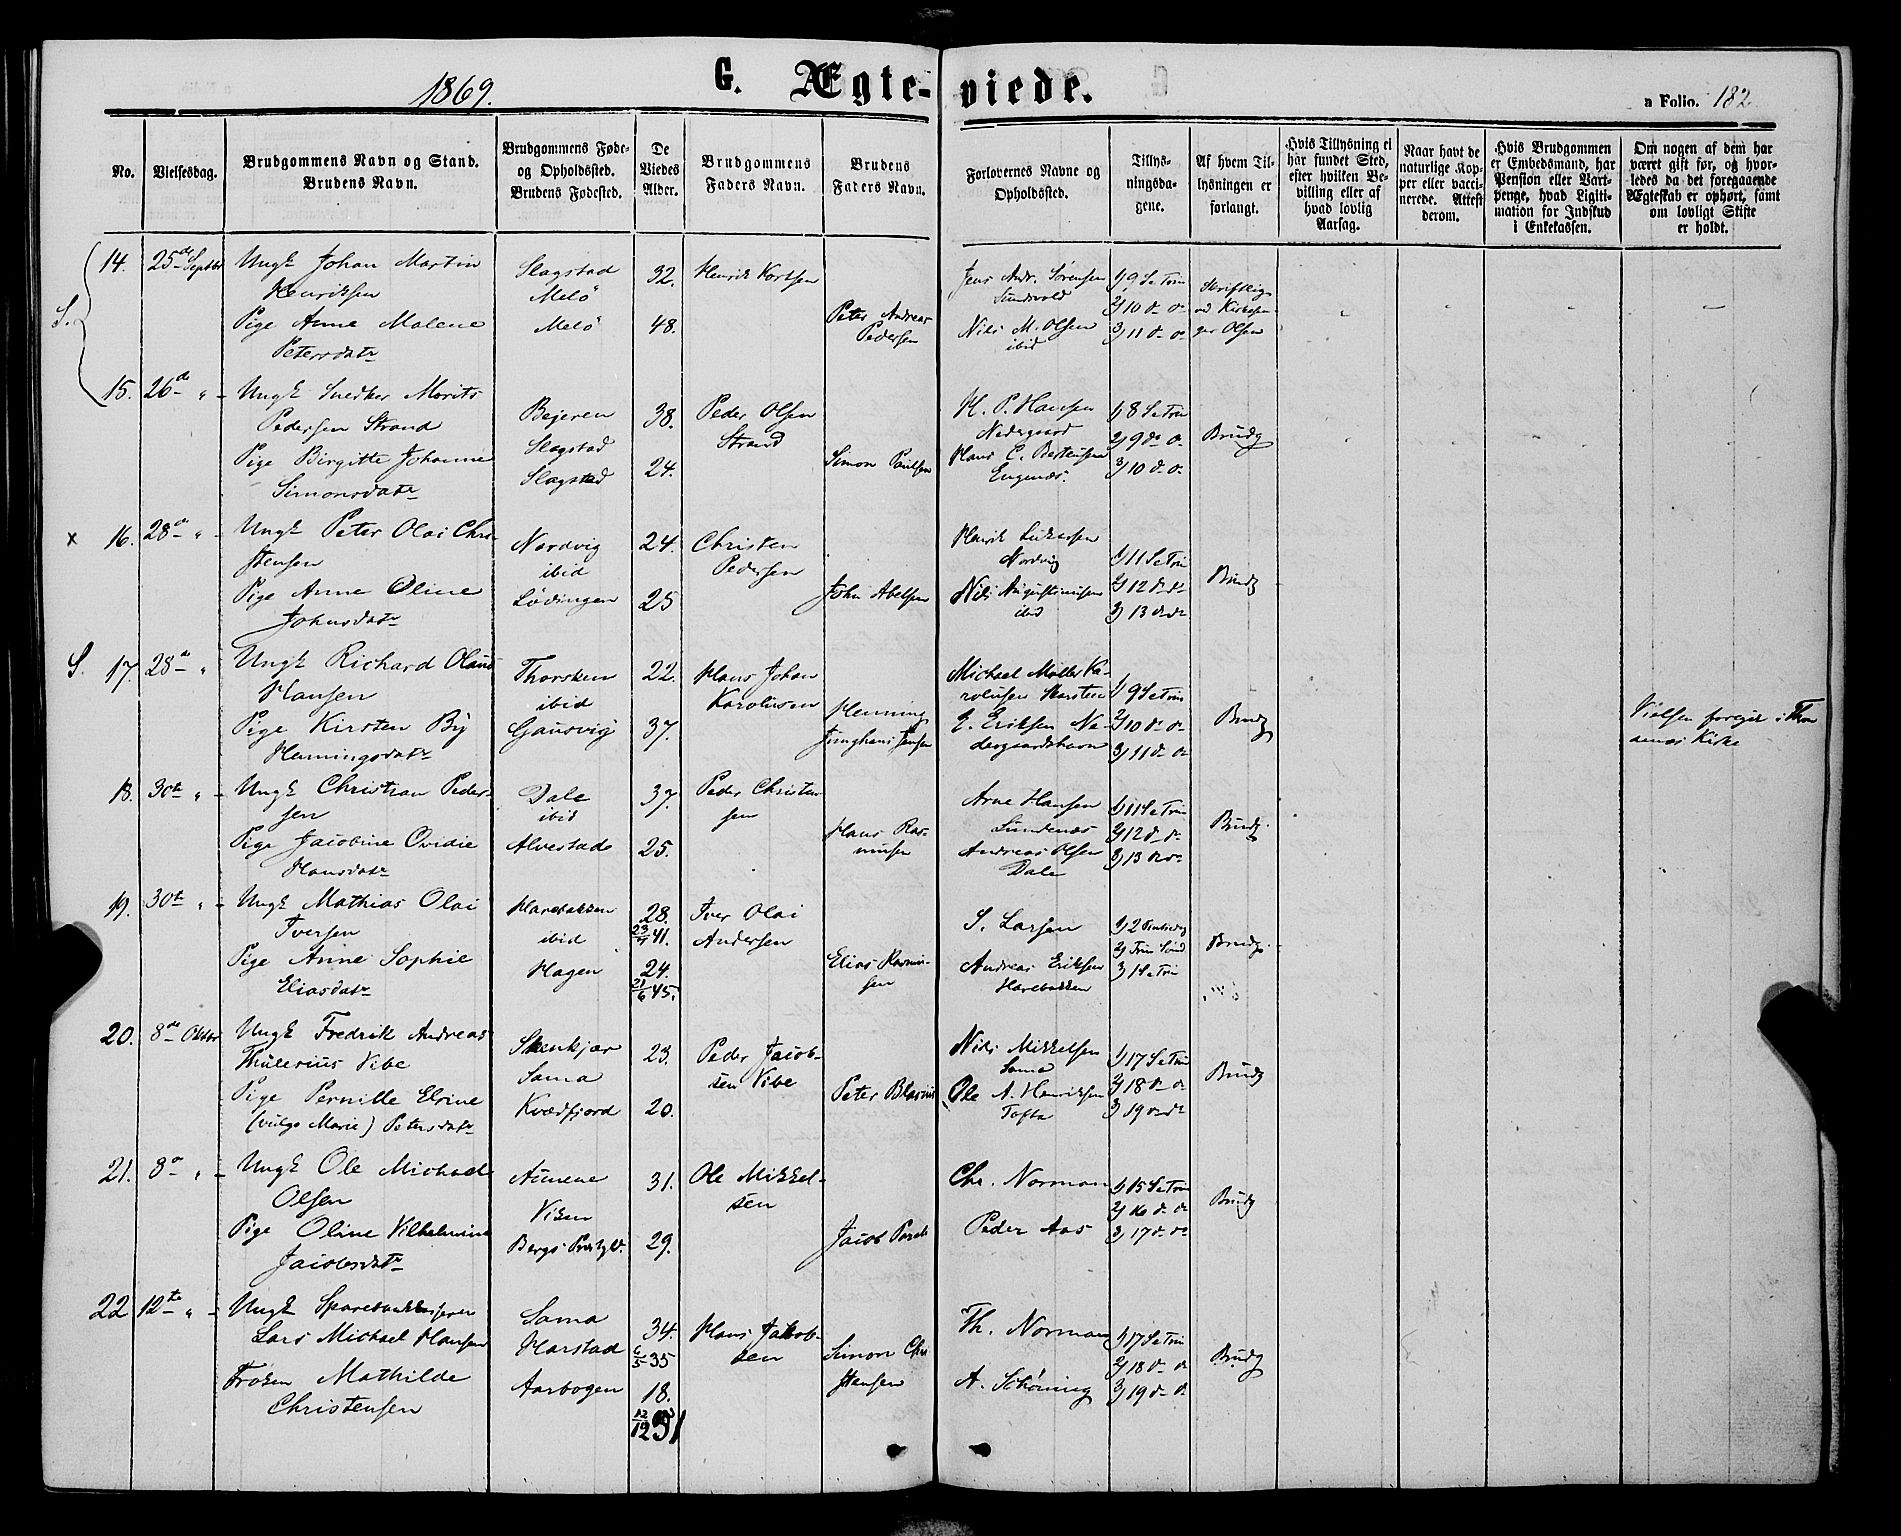 1869.
G. Ægte-viede.
a Folio. 182
No.
Vielsesdag.
Brudgommens Navn og Stand.
Brudens Navn.
Brudgommens Føde-
og Opholdssted.
Brudens Fødested.
De
Viedes
Alder.
Brudgommens
Faders Navn.
Brudens
Faders Navn.
Forlovernes Navne og
Opholdssted.
Tillys-
ningsda-
gene.
Af hvem Til-
lysningen er
forlangt.
Hvis Tillysning ei
har fundet Sted,
efter hvilken Be-
villing eller af
hvad lovlig
Aarsag.
Naar havt de
naturlige Kop-
per eller vacci-
nerede. Attest
derom.
Hvis Brudgommen
er Embedsmand, har
Pension eller Vart-
penge, hvad Ligiti-
mation for Indskud
i Enkekassen.
Om nogen af dem har
været gift før, og hvor-
ledes da det foregaaende
Ægteskab er ophørt, samt
om lovligt Skifte
er holdt.
S.
14. 25de Septbr
Ungk Johan Martin
Henriksen
Pige Anne Malene
Petersdatr
Slagstad
Melö
Melö
32.
48.
Henrik Kortsen
Peter Andreas
Pedersen
Jens Andr. Sørensen
Sundvold
Nils M. Olsen
ibid
1) 9 S e Trin
2) 10 d- o-
3) 11 d- o-
Skriftlig
ved Kirkesan-
ger Olsen
15. 26de "
Ungk Snedker Morits
Pedersen Strand
Pige Birgitte Johanne
Simonsdatr
Bejeren
Slagstad
Slagstad
38.
24.
Peder Olsen
Strand
Simon Paulsen
H. P. Hansen
Nedergaard
Hans C. Berteusen
Engenæs.
1) 8 S e Trin
2) 9 d- o-
3) 10 d- o-
Brudg
x 16. 28de "
Ungk Peter Olai Chri-
stensen
Pige Anne Oline
Johnsdatr
Nordvig
ibid
Lödingen
24.
25
Christen
Pedersen
John Abelsen
Henrik Lukassen
Nordvig
Nils Augustinusen
ibid
1) 11 S e Trin
2) 12 d- d-
3) 13 d- d-
Brudg
S. 17. 28de "
Ungk Richard Olaus
Hansen
Pige Kirsten By
Henningsdatr
Thorsken
ibid
Gausvig
22.
37.
Hans Johan
Karolusen
Henning
Junghans Jensen
Michael Møller Ka-
rolusen Harstein
E. Eriksen Ne-
dergaardshavn
1) 9 S e Trin
2) 10 d- o-
3) 11 d- o-
Brudg
Vielsen foregik i Thron
denæs Kirke
18. 30te "
Ungk Christian Peder-
sen
Pige Jacobine Ovidie
Hansdatr
Dale
ibid
Alvestade
37.
25.
Peder Christen
sen
Hans Ras-
musen
Arne Hansen
Sundenæs
Andreas Olsen
Dale
1) 11 S e Trin
2) 12 d- d-
3) 13 d- o-
Brudg.
19. 30te "
Ungk Mathias Olai
Iversen
Pige Anne Sophie
Eliasdatr
Harebakken
ibid
Hagen
28.
23/7 41.
24.
21/6 45.
Iver Olai
Andersen
Elias Rasmu-
sen
S. Larsen
Andreas Eriksen
Harebakken
1) 2 Pintsedag
2) Trin Sönd
3) 1 S e Trin
Brudg.
20. 8de Oktbr
Ungk Fredrik Andreas
Thulerius Vibe
Pige Pernille Elrine
(vulgo Marie) Petersdatr
Stenkjær
Sama
Kvædfjord
23.
20.
Peder Jacob-
sen Vibe
Peter Blasius
Nils Mikkelsen
Sama
Ole A. Henriksen
Tofta
1) 17 S e Trin
2) 18 d- o-
3) 19 d- d-
Brudg
21. 8de "
Ungk Ole Michael
Olsen
Pige Oline Vilhelmine
Jacobsdatr
Aunene
Viken
Bergs Prstgld.
31.
29.
Ole Mikkel-
sen
Jacob Pareli
Chr. Norman
Peder Aas
1) 15 S e Trin
2) 16 d- d-
3) 17 d- o-
Brudg
22 12te "
Ungk Sparebankkasserer
Lars Michael Hansen
Frøken Mathilde
Christensen
Sama
Harstad
Aarbogen
34.
6/5 35
18.
12/12 51
Hans Jakob-
sen
Simon Chri
stensen
Th. Norman
A. Schöning
1) 17 S e Trin
2) 18 d- o-
3) 19 d- o-
Brudg